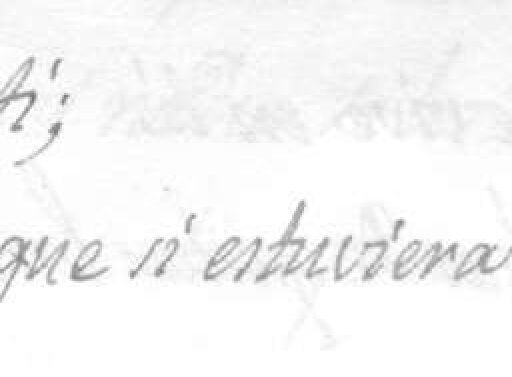 ti;
que si estuviera